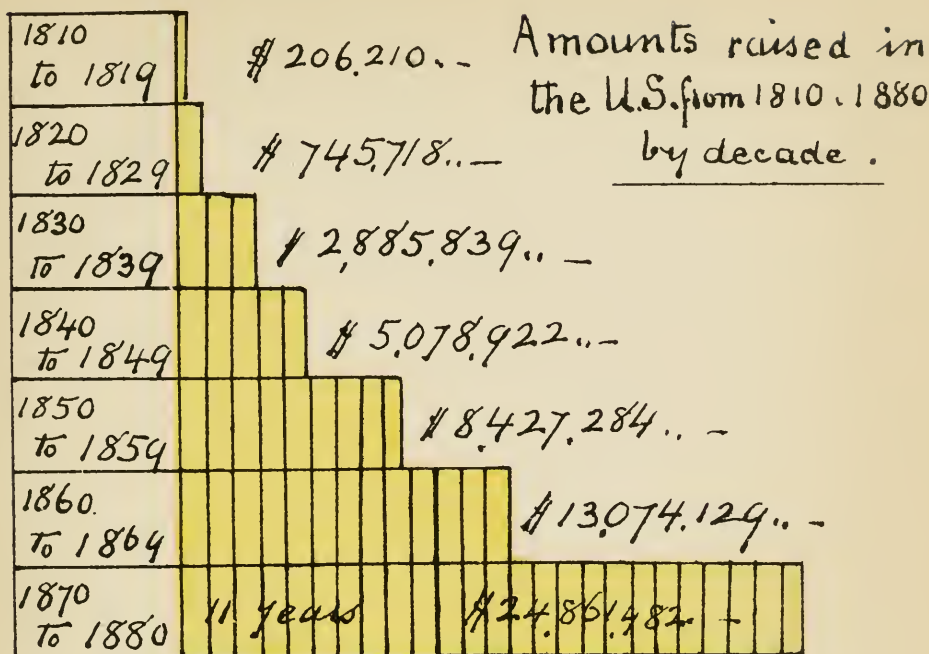 Amounts raised in
the U.S. from 1810.1880
by decade.
1810
to 1819
$ 206.210..-
1820
to 1829
$ 745.718..-
1830
to 1839
$ 2,885,839..-
1840
to 1849
$ 5,078,922..-
1850
to 1859
$ 8,427,284..-
1860.
to 1869
$ 13,074,129..-
1870
to 1880
11 years
$ 24,861,482.-